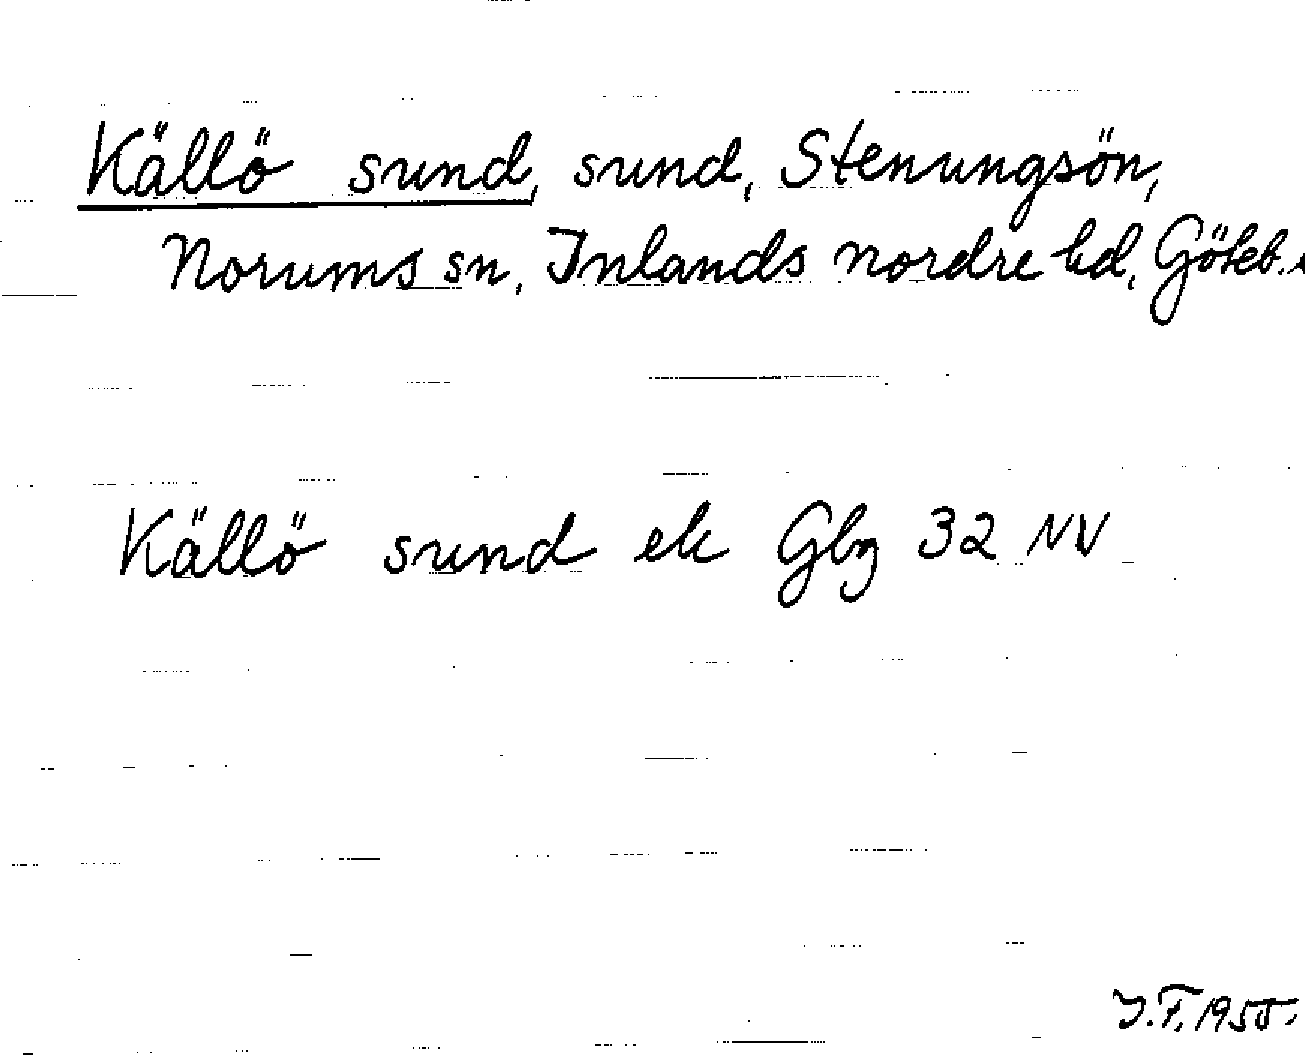 Källö sund, sund, Stenungsön,
Norums sn, Inlands nordre hd, Göteb.
Källö sund ek Gbg 32 NV
J.F. 1955.